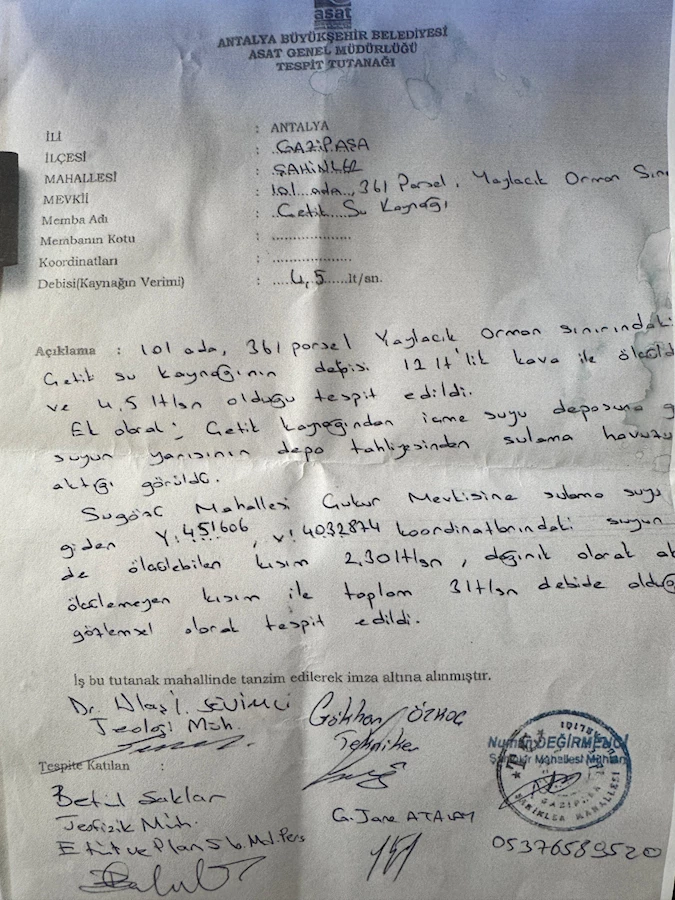 asat
ANTALYA BÜYÜKŞEHİR BELEDİYESİ
ASAT GENEL MÜDÜRLÜĞÜ
TESPİT TUTANAĞI
İLİ : ANTALYA
İLÇESİ : GAZİPAŞA
MAHALLESİ : ŞAHİNLER
MEVKİİ : 101 ada, 361 Parsel, Yaylacık Orman Sını
Memba Adı : Getik Su Kaynağı
Membanın Kotu : ....................
Koordinatları : ....................
Debisi(Kaynağın Verimi) : 4,5 lt/sn.
Açıklama : 101 ada, 361 parsel Yaylacık Orman sınırındaki
Getik su kaynağının depisi 12 lt'lik kova ile ölçüld
ve 4,5 lt/sn olduğu tespit edildi.
Ek olarak; Getik kaynağından içme suyu deposuna g
suyun yarısının depo tahliyesinden sulama havuzu
aktığı görüldü.
Sugözü Mahallesi Çukur Mevkisine sulama suyu
giden Y:451606, V:4032874 koordinatlarındaki suyun
de ölçülebilen kısım 2,30lt/sn, dağınık olarak ak
ölçülemeyen kısım ile toplam 3lt/sn debide olduğ
gözlemsel olarak tespit edildi.
İş bu tutanak mahallinde tanzim edilerek imza altına alınmıştır.
Dr. Ulaş İ. SEVİMLİ
Jeoloji Müh.
Gökhan ÖZKOÇ
Tekniker
Numan DEĞİRMENCİ
Mahallesi Muhtarı
GAZİPAŞA
MAHALLESİ
Tespite Katılan :
Betül Saklar
Jeofizik Müh.
Etüt ve Plan Şb. Md. Pers
G. Jane ATALAY
05376589520